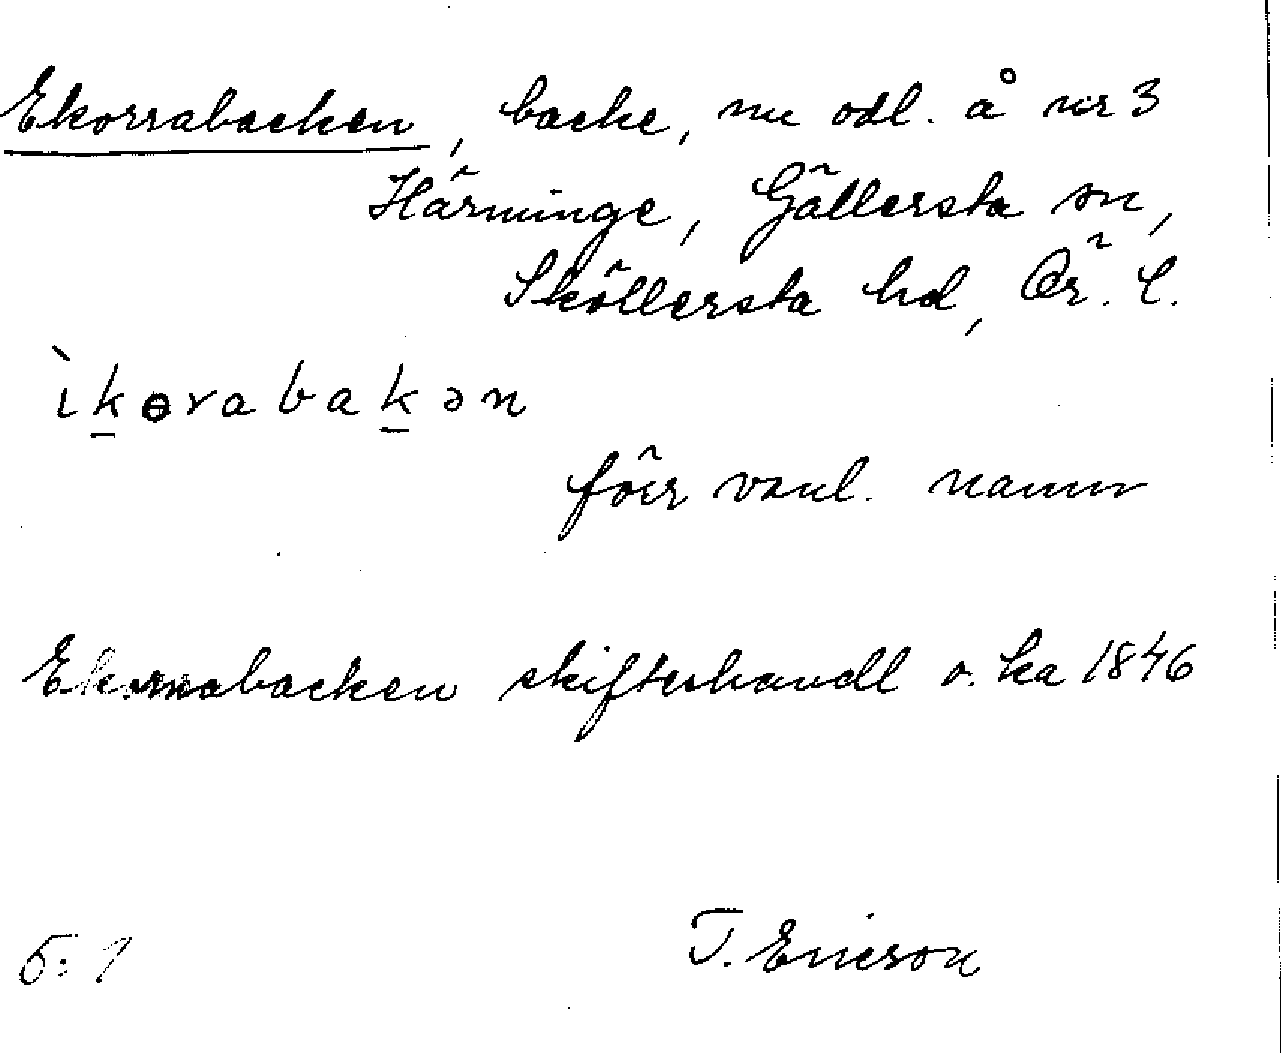 Ekorrabacken, backe, nu odl. å nr 3
Härminge, Gällersta sn,
Sköllersta hd, Ör. l.
ìk̲ɵrabak̲ən
förr vanl. namn
Ekorrabacken skifteshandl o. ka 1846
T. Ericson
5:1